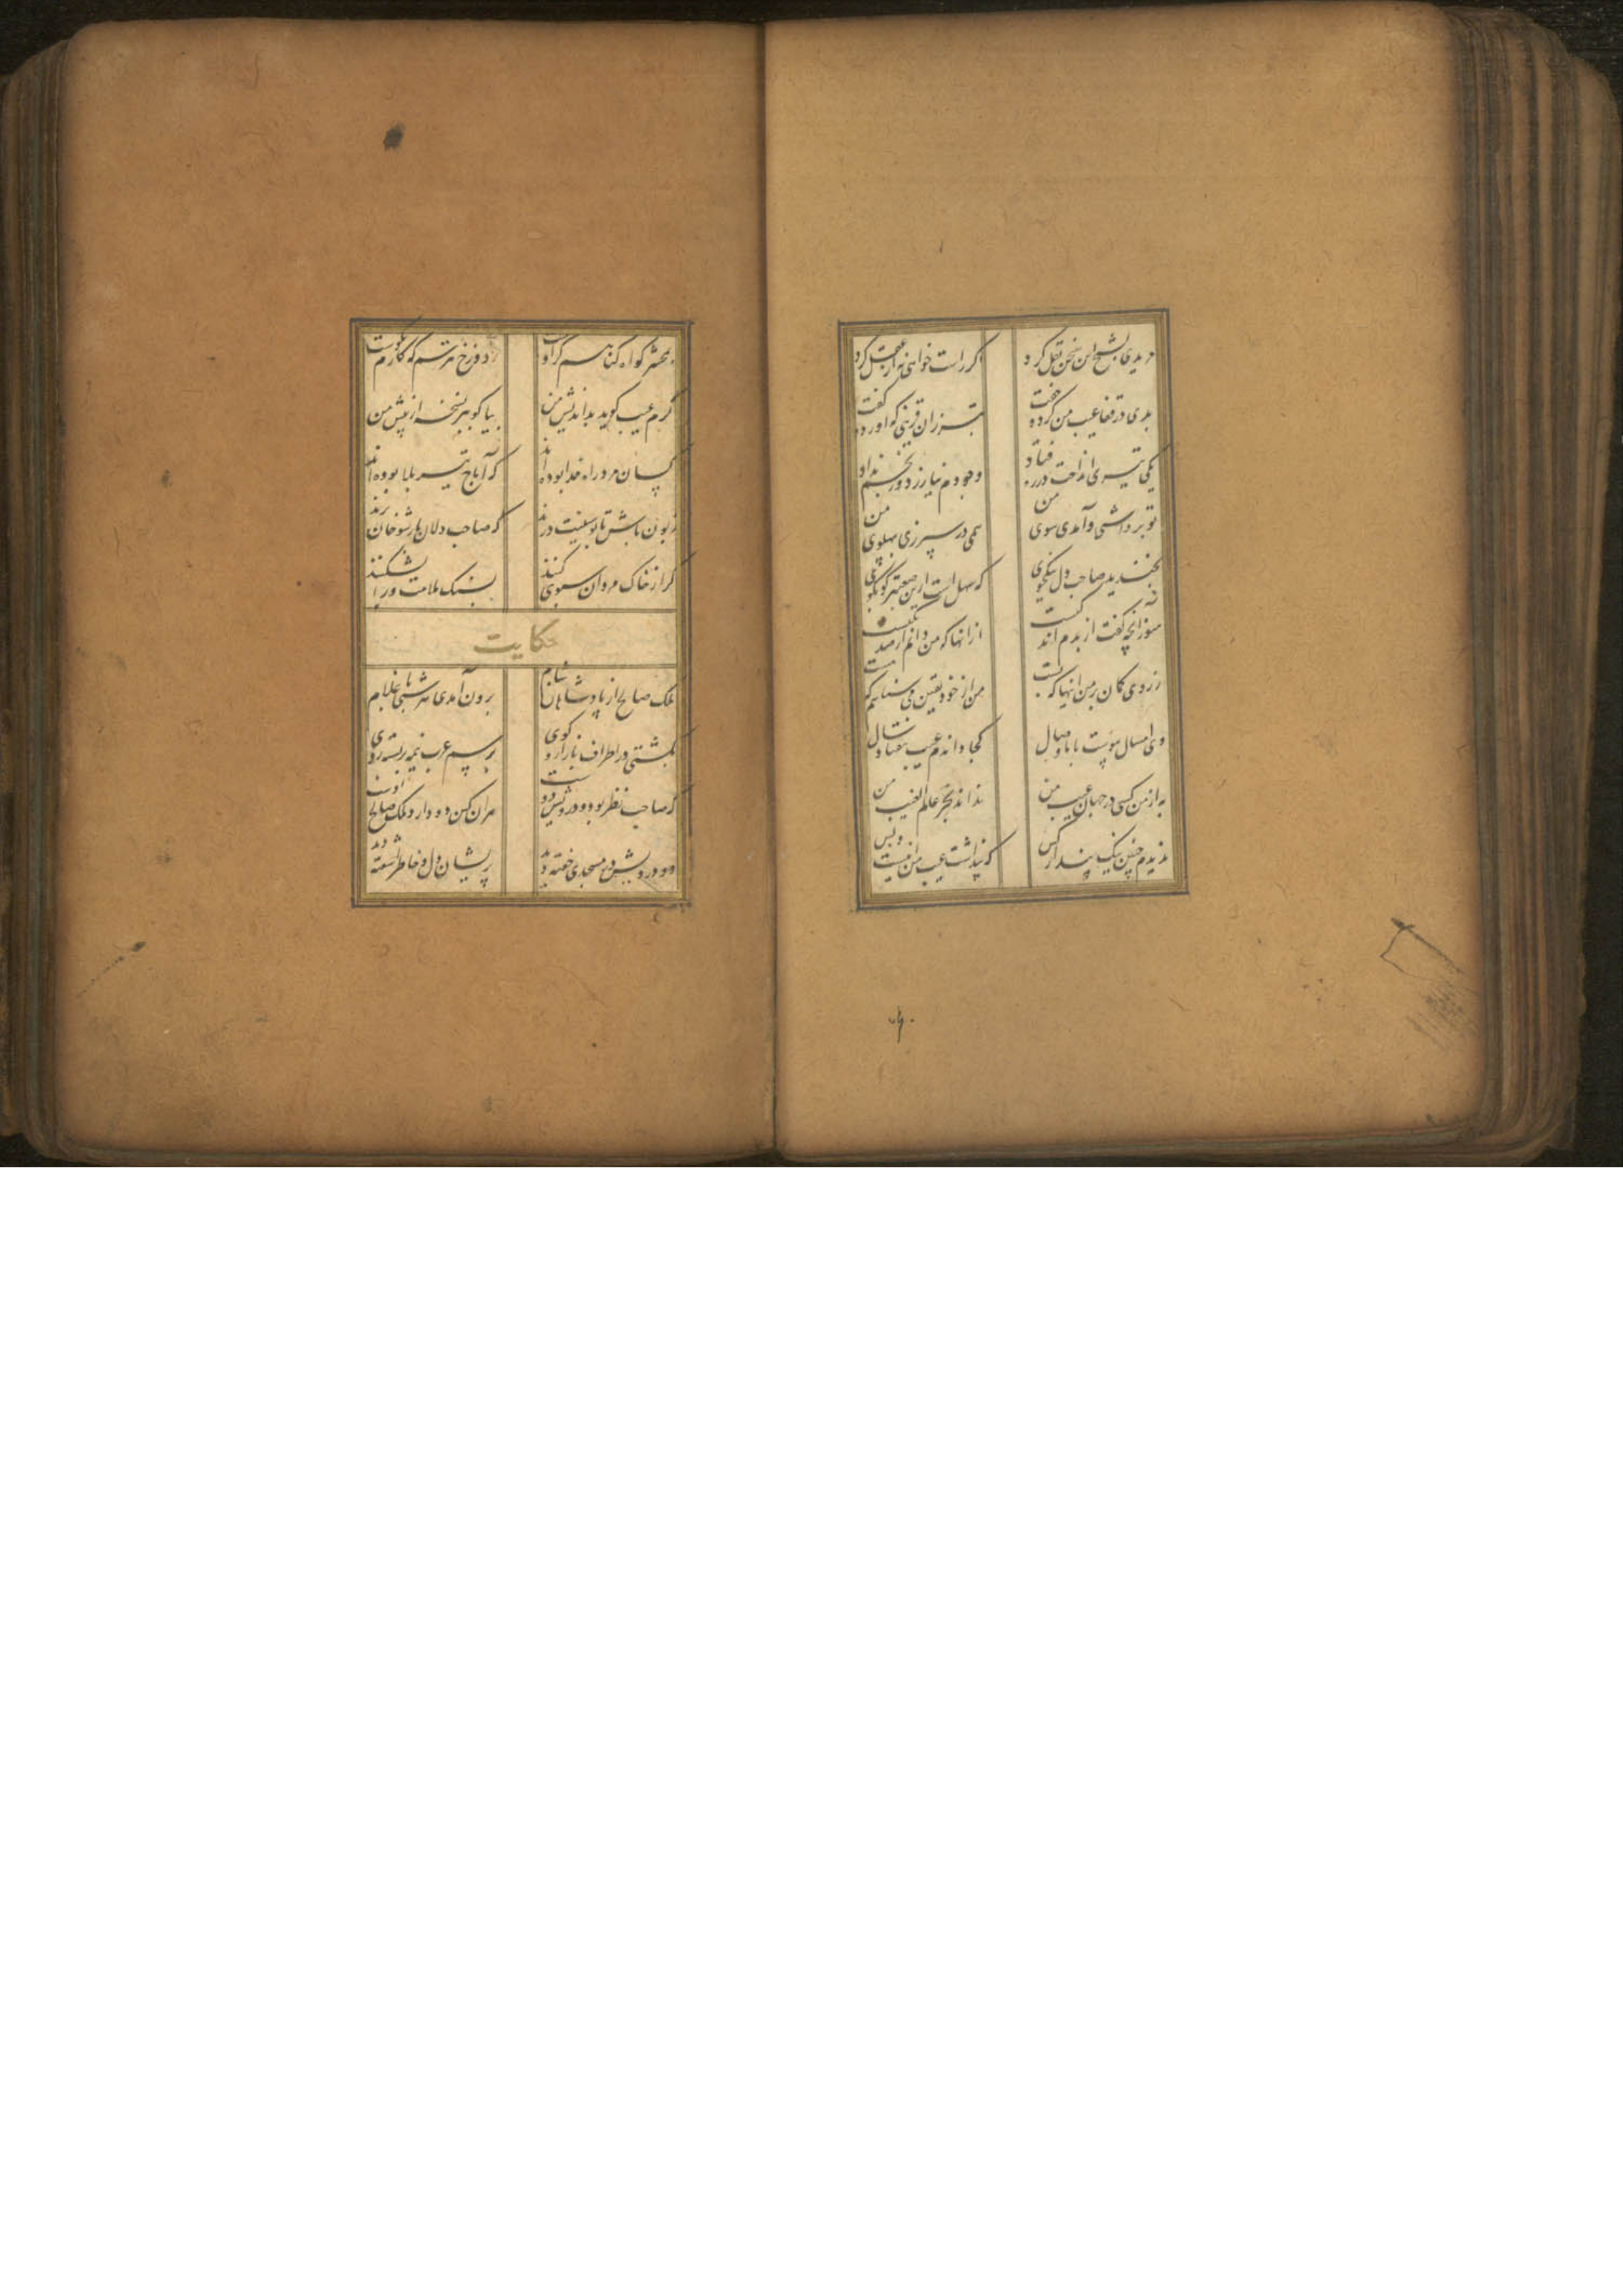 مریدی بشیخ این سخن نقل کرد اگر راست خواهی نه از عقل کرد
بدی در قفا عیب من کرد و خفت بتر زان قرینی که آورد و گفت
یکی تیری انداخت در ره فتاد وجودم نیازرد و رنجم نداد
تو برداشتی و آمدی سوی من همی در سپوزی بپهلوی من
بخندید صاحب دل نیکخوی که سهل است ازین صعبتر کو بگوی
هنوز آنچه گفت از بدم اندکیست از آنها که من دانم از صد یکیست
ز روی گمان بر من آنها که بست من از خود یقین می شناسم که هست
وی امسال پیوست با ما وصال کجا داندم عیب هفتاد سال
به از من کسی در جهان عیب من نداند بجز عالم الغیب من
ندیدم چنین نیک پندار کس که پنداشت عیب من اینست و بس
بمحشر گواه گناهم گر اوست ز دوزخ نترسم که کارم نکوست
گرم عیب گوید بداندیش من بیا گو ببر نسخه از پیش من
کسان مرد راه خدا بوده اند که آماج تیر بلا بوده اند
زبون باش تا پوستینت درند که صاحب دلان بار شوخان برند
گر از خاک مردان سبویی کنند بسنگ ملامت ورا بشکنند
حکایت
ملک صالح از پادشاهان شام برون آمدی هر شبی با غلام
بگشتی در اطراف بازار و کوی برسم عرب نیمه بربسته روی
که صاحب نظر بود و درویش دوست هر آن کین دو دارد ملک صالح اوست
دو درویش در مسجدی خفته دید پریشان دل و خاطر آشفته دید